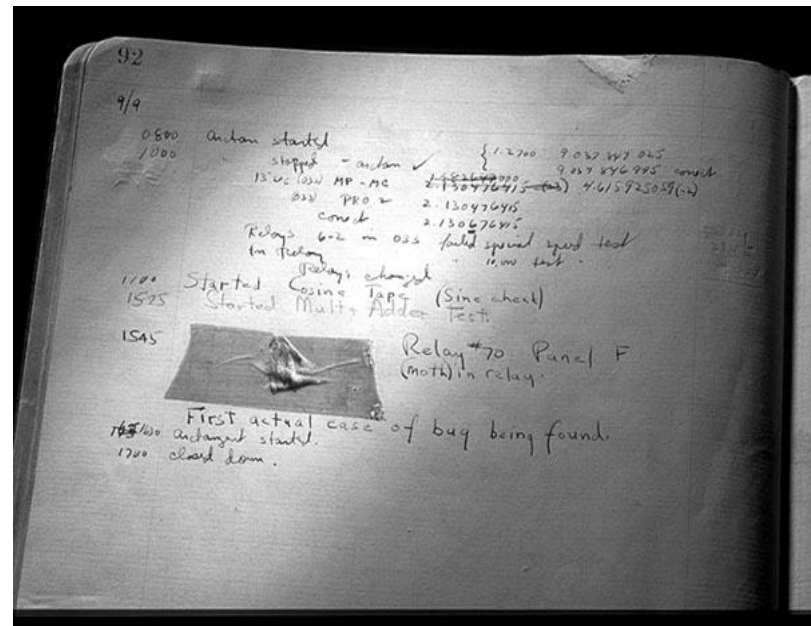 92
9/9
0800 arctan started
1000 stopped - arctan ✓ { 1.2700 9.037 847 025
9.037 846 995 correct
13" UC (032) MP-MC 4.615925059(-2)
(033) PRO 2 2.130476415
correct 2.130676415
Relays 6-2 in 033 failed special speed test
In Relay 10,000 test.
Relays changed
1100 Started Cosine Tape (Sine check)
1525 Started Mult+Adder Test.
1545 Relay #70 Panel F
(moth) in relay.
First actual case of bug being found.
1630 arctangent started.
1700 closed down.